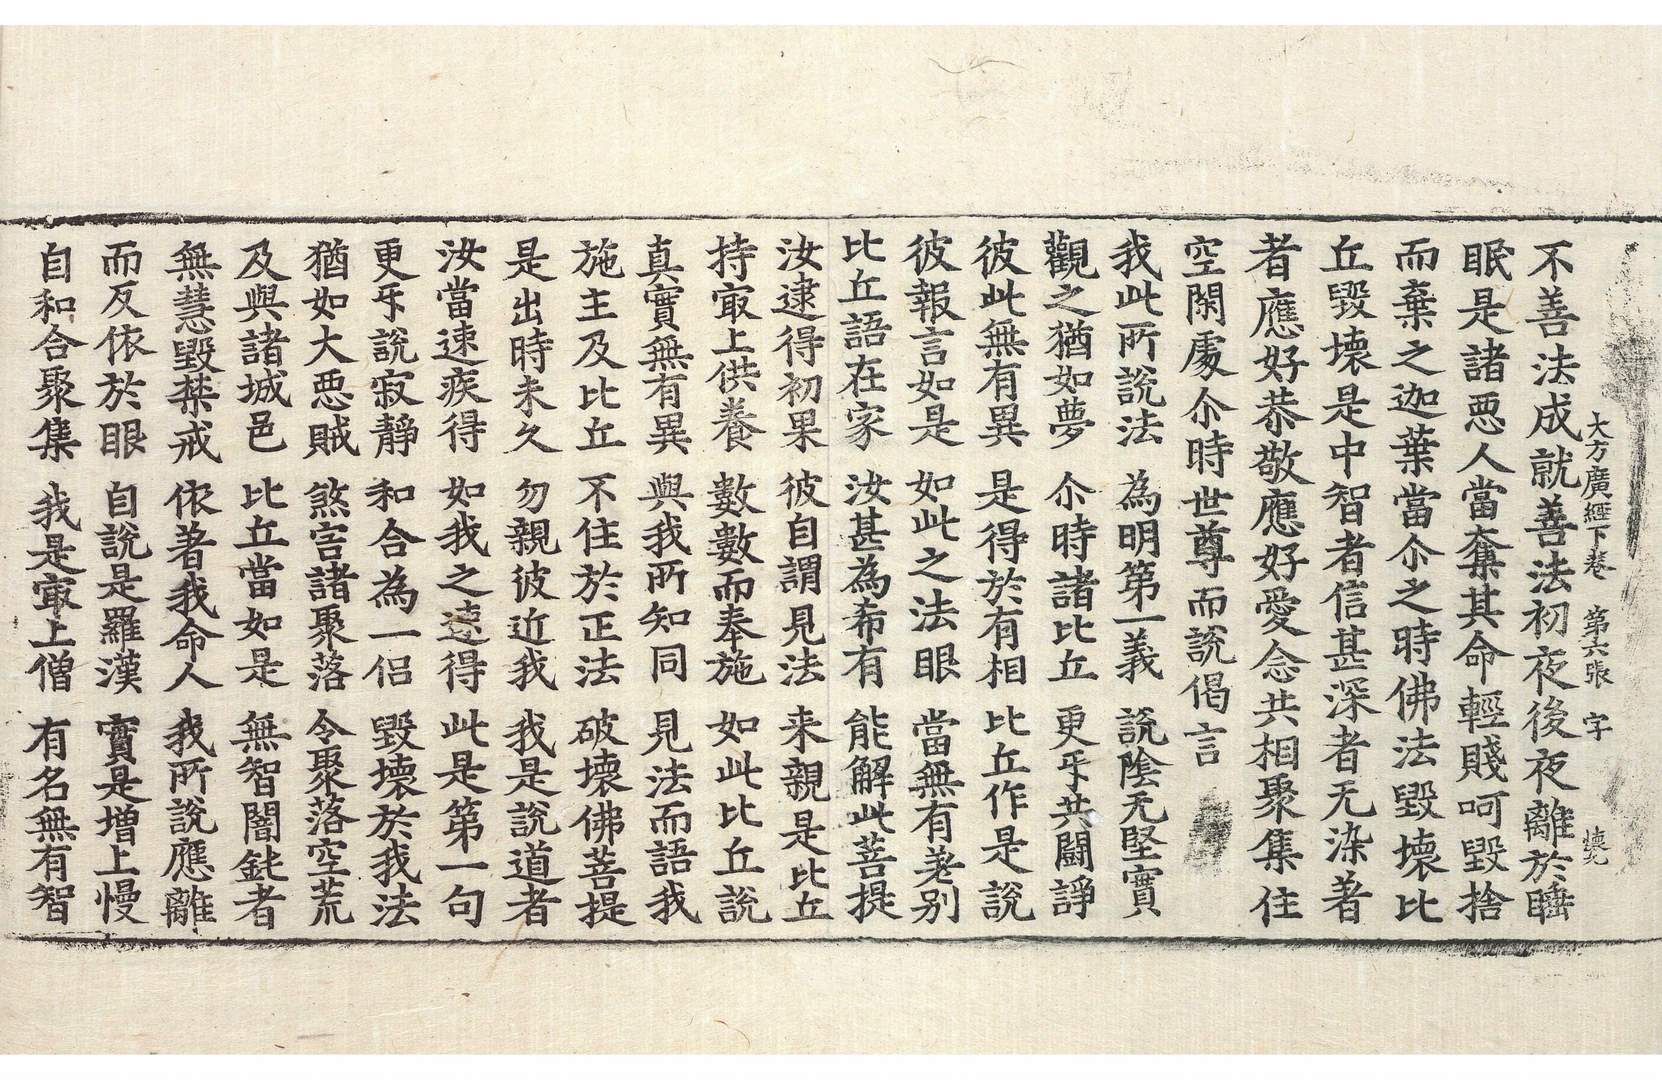 大方廣經下卷 第六張 字
不善法成就善法初夜後夜離於睡
眠是諸惡人當奪其命輕賤呵毀捨
而棄之迦葉當尒之時佛法毀壞比
丘毀壞是中智者信甚深者无染著
者應好恭敬應好愛念共相聚集住
空閑處尒時世尊而說偈言
我此所說法 為明第一義 說陰无堅實
觀之猶如夢 尒時諸比丘 更㸦共鬪諍
彼此無有異 是得於有相 比丘作是說
彼報言如是 如此之法眼 當無有差別
比丘語在家 汝甚為希有 能解此菩提
汝逮得初果 彼自謂見法 来親是比丘
持㝡上供養 數數而奉施 如此比丘說
真實無有異 與我所知同 見法而語我
施主及比丘 不住於正法 破壞佛菩提
是出時未久 勿親彼近我 我是說道者
汝當速疾得 如我之速得 此是第一句
更㸦說寂靜 和合為一侣 毀壞於我法
猶如大惡賊 煞害諸聚落 令聚落空荒
及與諸城邑 比丘當如是 無智闇鈍者
無慧毀禁戒 依著我命人 我所說應離
而反依於眼 自說是羅漢 實是增上慢
自和合聚集 我是㝡上僧 有名無有智